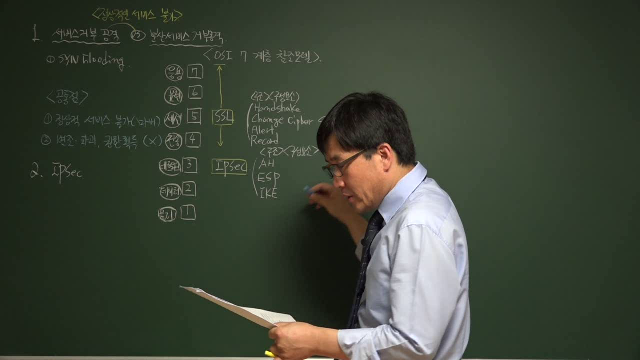 <정상적인 서비스 불가>
1. 서비스거부 공격 ⊃ 분산서비스 거부공격
① SYN flooding.
<공통점>
① 정상적 서비스 불가(마비)
② 변조, 파괴, 권한획득 (X)
2. IPsec
<OSI 7계층 참조모델>
응용 7
6
5 SSL
4
3 IPsec
2
물리 1
<구조><구성요소>
Handshake
Change Cipher
Alert
Record
<구조><구성요소>
AH
ESP
IKE